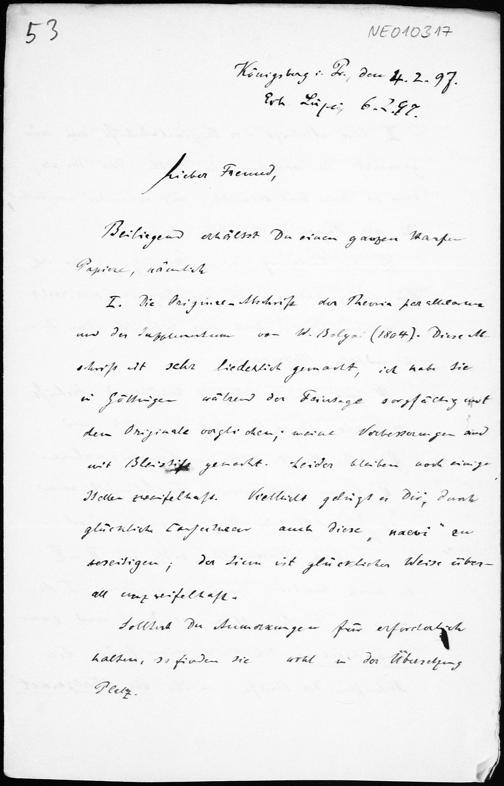 53
NE010317
Königsberg i. Pr., den 4.2.97.
Erh. Leipzig 6.2.97.
Lieber Freund,
Beiliegend erhältst Du einen ganzen Haufen
Papiere, nämlich
I. Die Original-Abschrift der Theoria parallelarum
und des Supplementum von W. Bolyai (1804). Diese Ab-
schrift ist sehr liederlich gemacht, ich habe sie
in Göttingen während der Feiertage sorgfältig mit
dem Originale verglichen; meine Verbesserungen sind
mit Bleistift gemacht. Leider bleiben noch einige
Stellen zweifelhaft. Vielleicht gelingt es Dir, durch
glückliche Conjecturen auch diese „naevi" zu
beseitigen; der Sinn ist glücklicher Weise über-
all unzweifelhaft.
Solltest Du Anmerkungen für erforderlich
halten, so finden sie wohl in der Übersetzung
Platz.